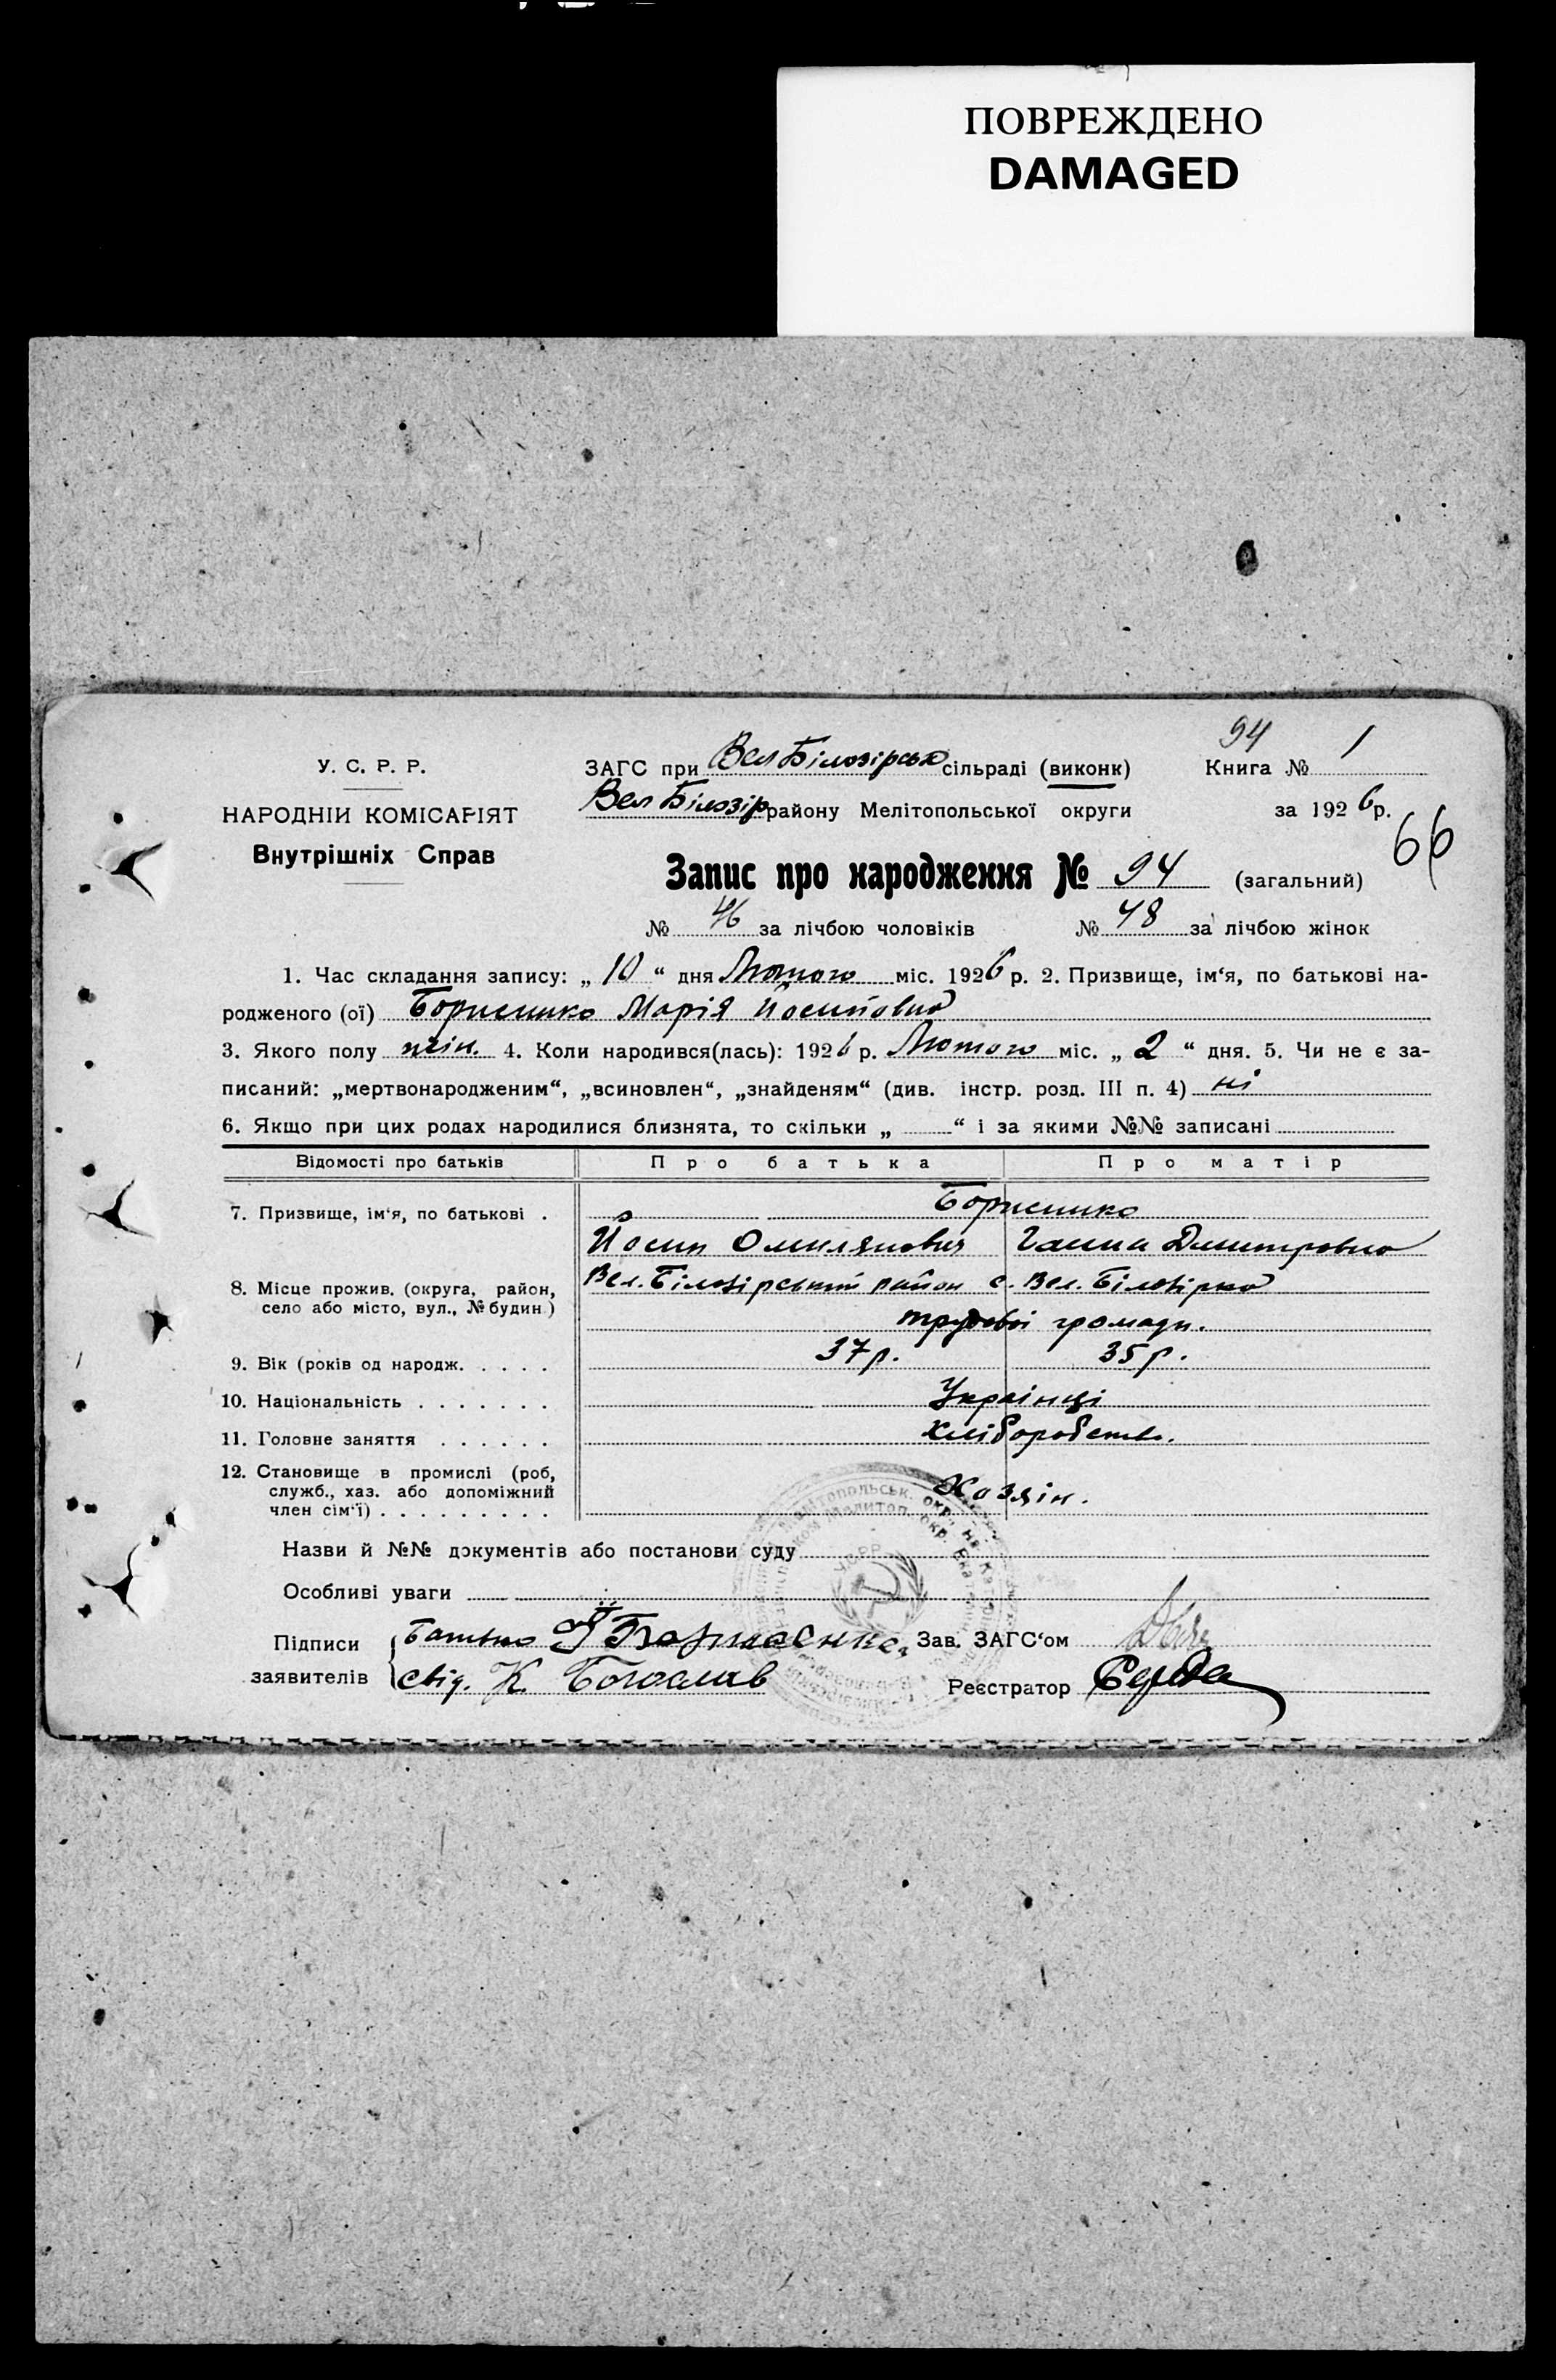 ПОВРЕЖДЕНО
DAMAGED
94
У. С. Р. Р.
ЗАГС при Вел Білозірськ сільраді (виконк)
Книга № 1
НАРОДНІЙ КОМІСАРІЯТ
Вел Білозір району Мелітопольської округи
за 1926 р.
66
Внутрішніх Справ
Запис про народження № 94 (загальний)
№ 46 за лічбою чоловіків № 48 за лічбою жінок
1. Час складання запису: „ 10 “ дня Лютого міс. 1926 р. 2. Призвище, ім‘я, по батькові на-
родженого (ої) Борисенко Марія Йосиповна
3. Якого полу жін. 4. Коли народився(лась): 1926 р. Лютого міс. „ 2 “ дня. 5. Чи не є за-
писаний: „мертвонародженим“, „всиновлен“, „знайденям“ (див. інстр. розд. III п. 4) ні
6. Якщо при цих родах народилися близнята, то скільки „ “ і за якими №№ записані
Відомості про батьків Про батька Про матір
7. Призвище, ім‘я, по батькові . Борисенко
Йосип Омилянович Ганна Дмитровна
8. Місце прожив. (округа, район, село або місто, вул., № будин.) Вел. Білозірський район с. Вел. Білозірка
трудової громади.
9. Вік (років од народж. . . . . 37 р. 35 р.
10. Національність . . . . . . . Українці
11. Головне заняття . . . . . . Хліборобств.
12. Становище в промислі (роб,
служб., хаз. або допоміжний
член сім‘ї) . . . . . . . . . Хозяін.
Назви й №№ документів або постанови суду
Особливі уваги
УСРР
Підписи заявителів
Батько Борисенко
свід. К.
Зав. ЗАГС‘ом
Реєстратор Середа